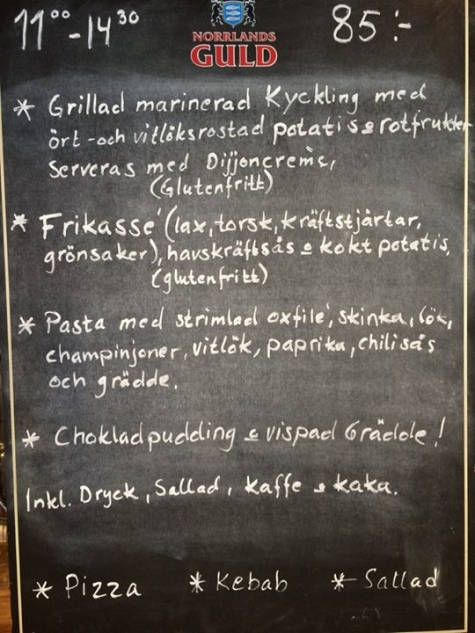 11⁰⁰-14³⁰ 85:-
NORRLANDS
GULD
* Grillad marinerad Kyckling med
ört-och vitlöksrostad potatis & rotfrukter
Serveras med Dijjoncremé,
(Glutenfritt)
* Frikassé (lax, torsk, kräftstjärtar,
grönsaker), havskräftsås & kokt potatis,
(glutenfritt)
* Pasta med strimlad oxfilé, skinka, lök,
champinjoner, vitlök, paprika, chilisås
och grädde.
* Chokladpudding & vispad Grädde!
Inkl. Dryck, Sallad, kaffe & kaka.
* Pizza * Kebab * Sallad